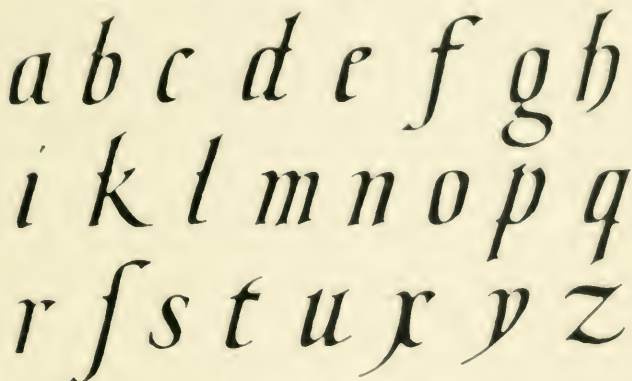 a b c d e f g h
i k l m n o p q
r ſ s t u x y z